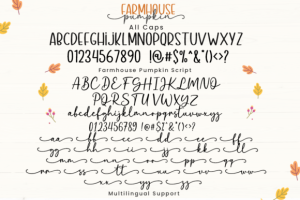 FARMHOUSE
pumpkin
All Caps
ABCDEFGHIJKLMNOPQRSTUVWXYZ
01234567890 !@#$%^&*()<>?
Farmhouse Pumpkin Script
ABCDEFGHIJKLMNO
PQRSTUVWXYZ
abcdefghijklmnopqrstuvwxyz
0123456789 !@#$%^&*()<>?
aa bb cc dd ee ff
gg hh ii jj kk ll
mm nn oo pp qq
rr ss tt uu vv ww
xx yy zz
Multilingual Support